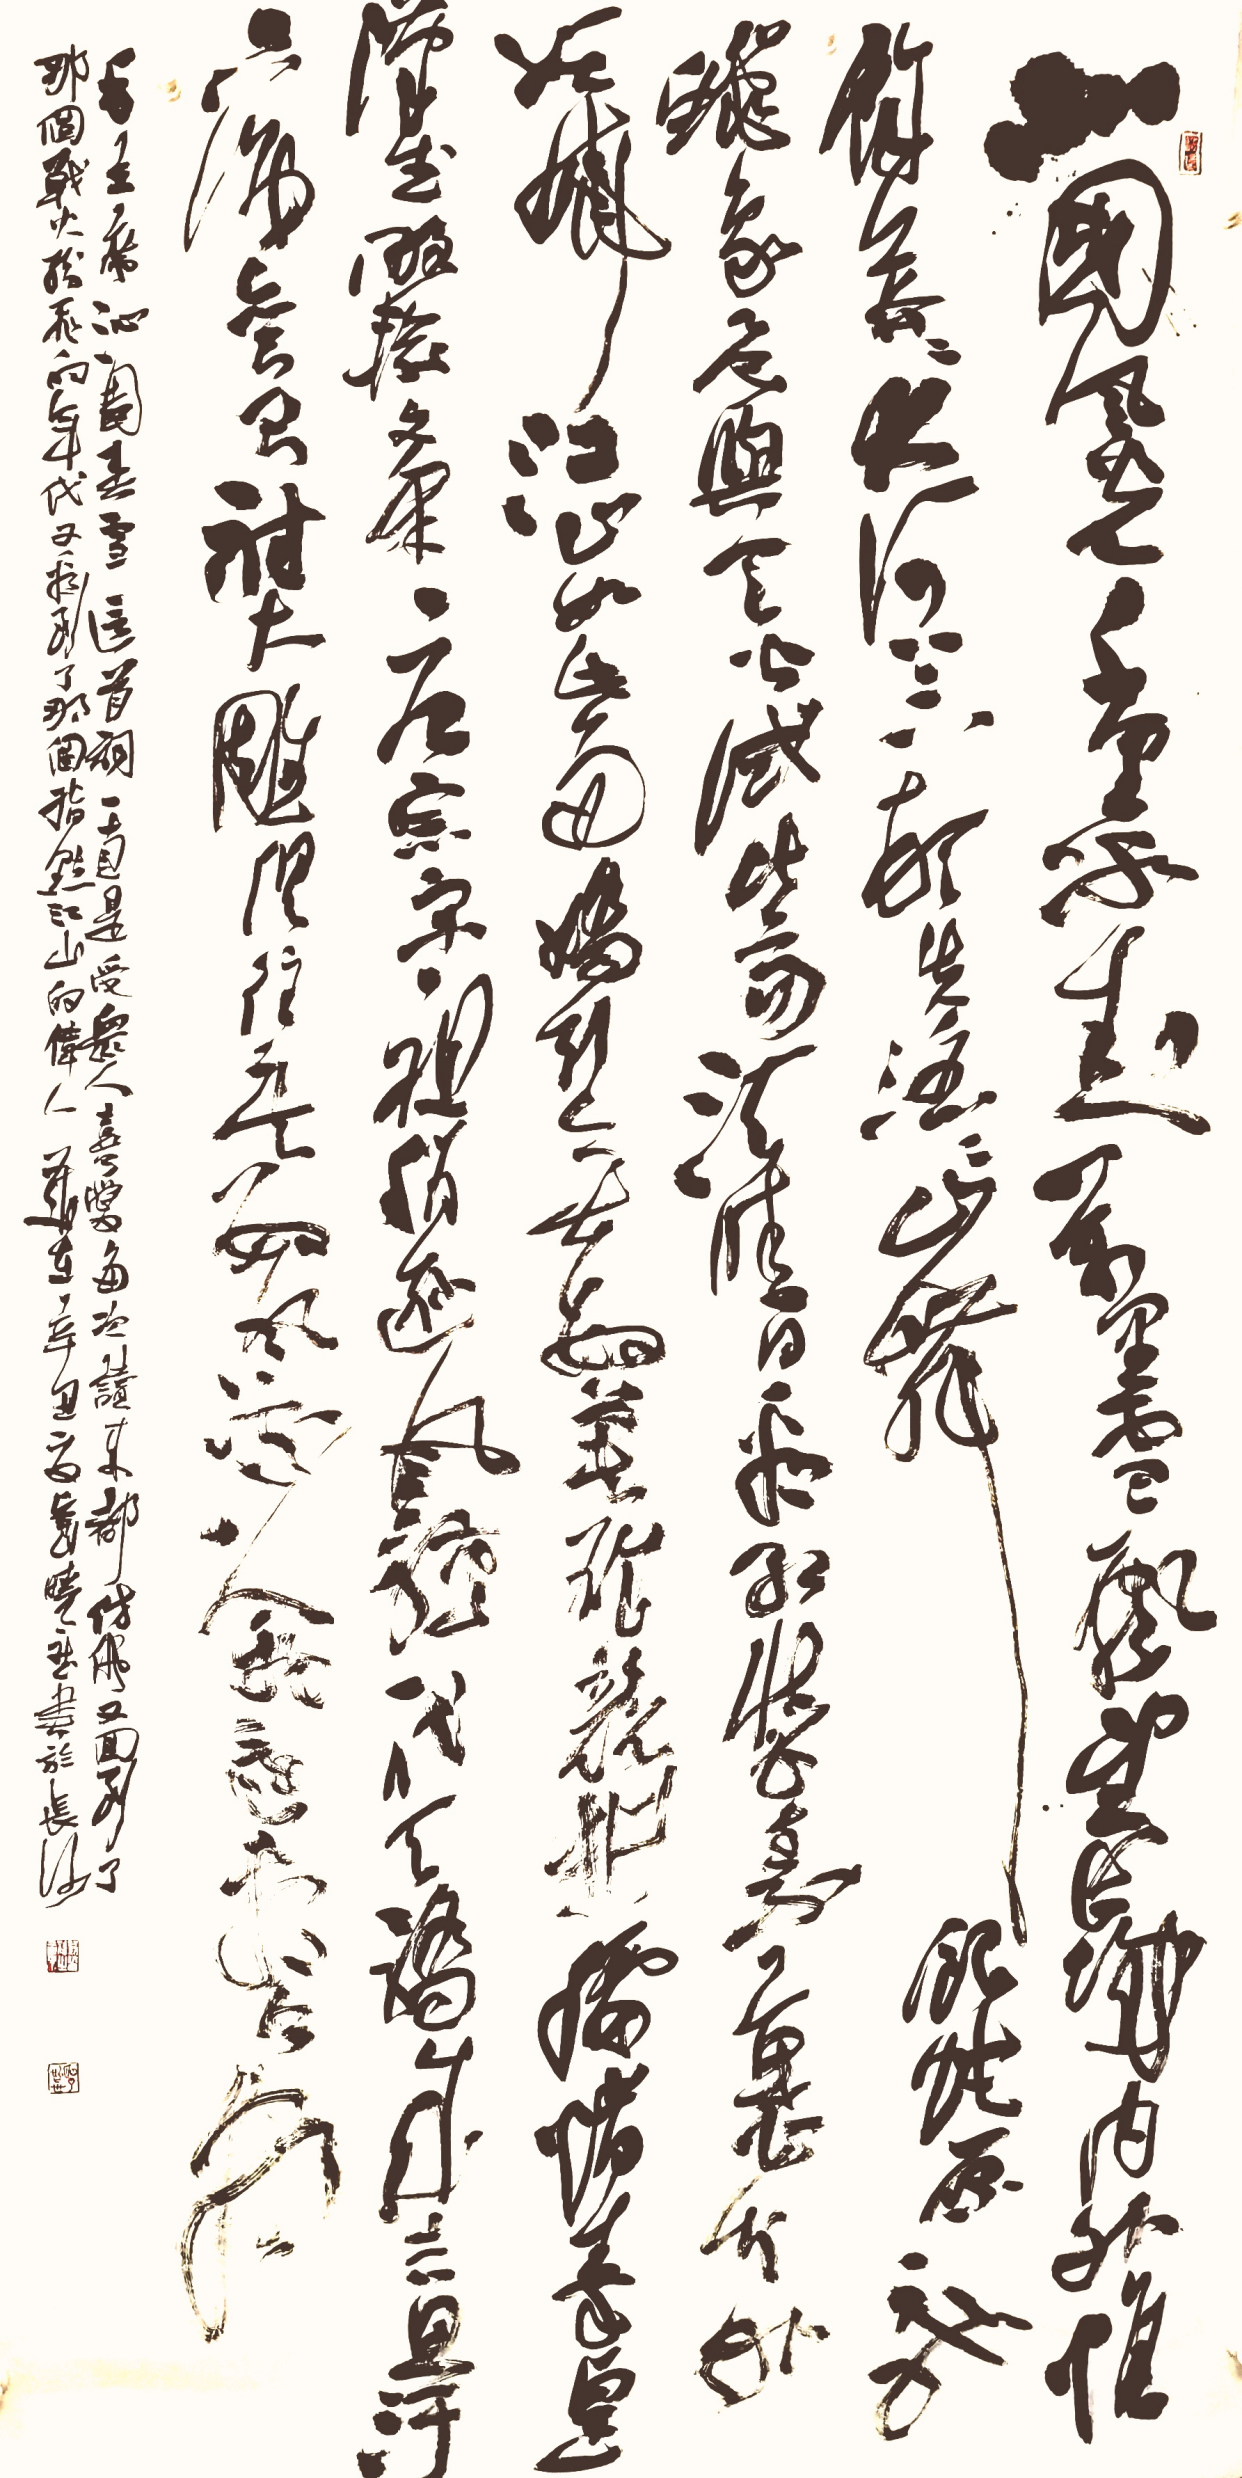 北國風光千里冰封萬里雪飄望長城內外惟
餘莽莽大河上下頓失滔滔山舞銀蛇原馳
蠟象欲與天公試比高須晴日看紅裝素裹分外
妖嬈江山如此多嬌引無數英雄競折腰惜秦皇
漢武略輸文采唐宗宋祖稍遜風騷一代天驕成吉思汗
只識彎弓射大雕俱往矣數風流人物還看今朝
毛主席沁園春雪這首詞一直是受眾人喜愛每次讀來都仿佛又回到了
那個戰火紛飛的年代又看到了那個指點江山的偉人歲在辛丑書於長沙